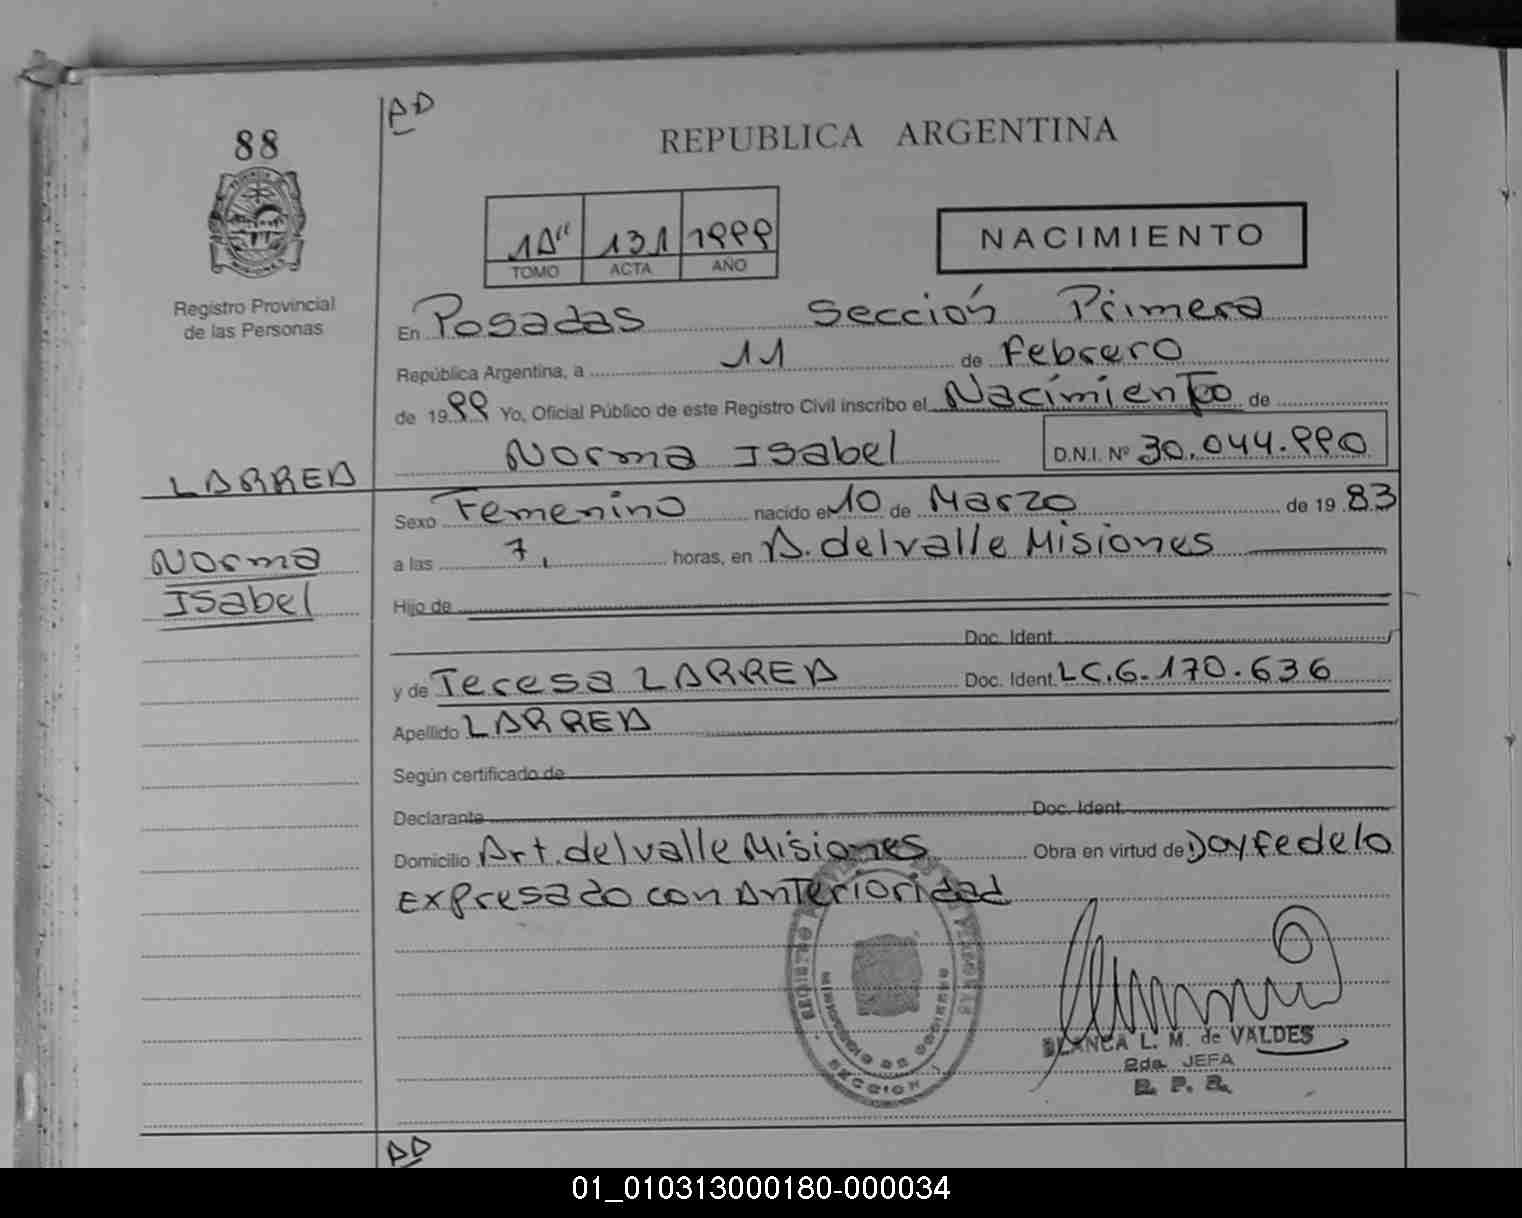 AD
88
REPUBLICA ARGENTINA
1A" 131 1999
TOMO ACTA AÑO
NACIMIENTO
Registro Provincial
de las Personas
En Posadas Sección Primera
República Argentina, a 11 de Febrero
de 1999 Yo, Oficial Público de este Registro Civil inscribo el Nacimiento de
Norma Isabel D.N.I. Nº 30.044.990
LARREA
Sexo Femenino nacido el 10 de Marzo de 1983
Norma
Isabel
a las 7, horas, en A. del valle Misiones
Hijo de
Doc. Ident.
y de Teresa LARREA Doc. Ident. LC.6.170.636
Apellido LARREA
Según certificado de
Declarante Doc. Ident.
Domicilio Art. del valle Misiones Obra en virtud de Doy fe de lo
Expresado con Anterioridad
BLANCA L. M. de VALDES
2da. JEFA
R. P. P.
AD
01_010313000180-000034